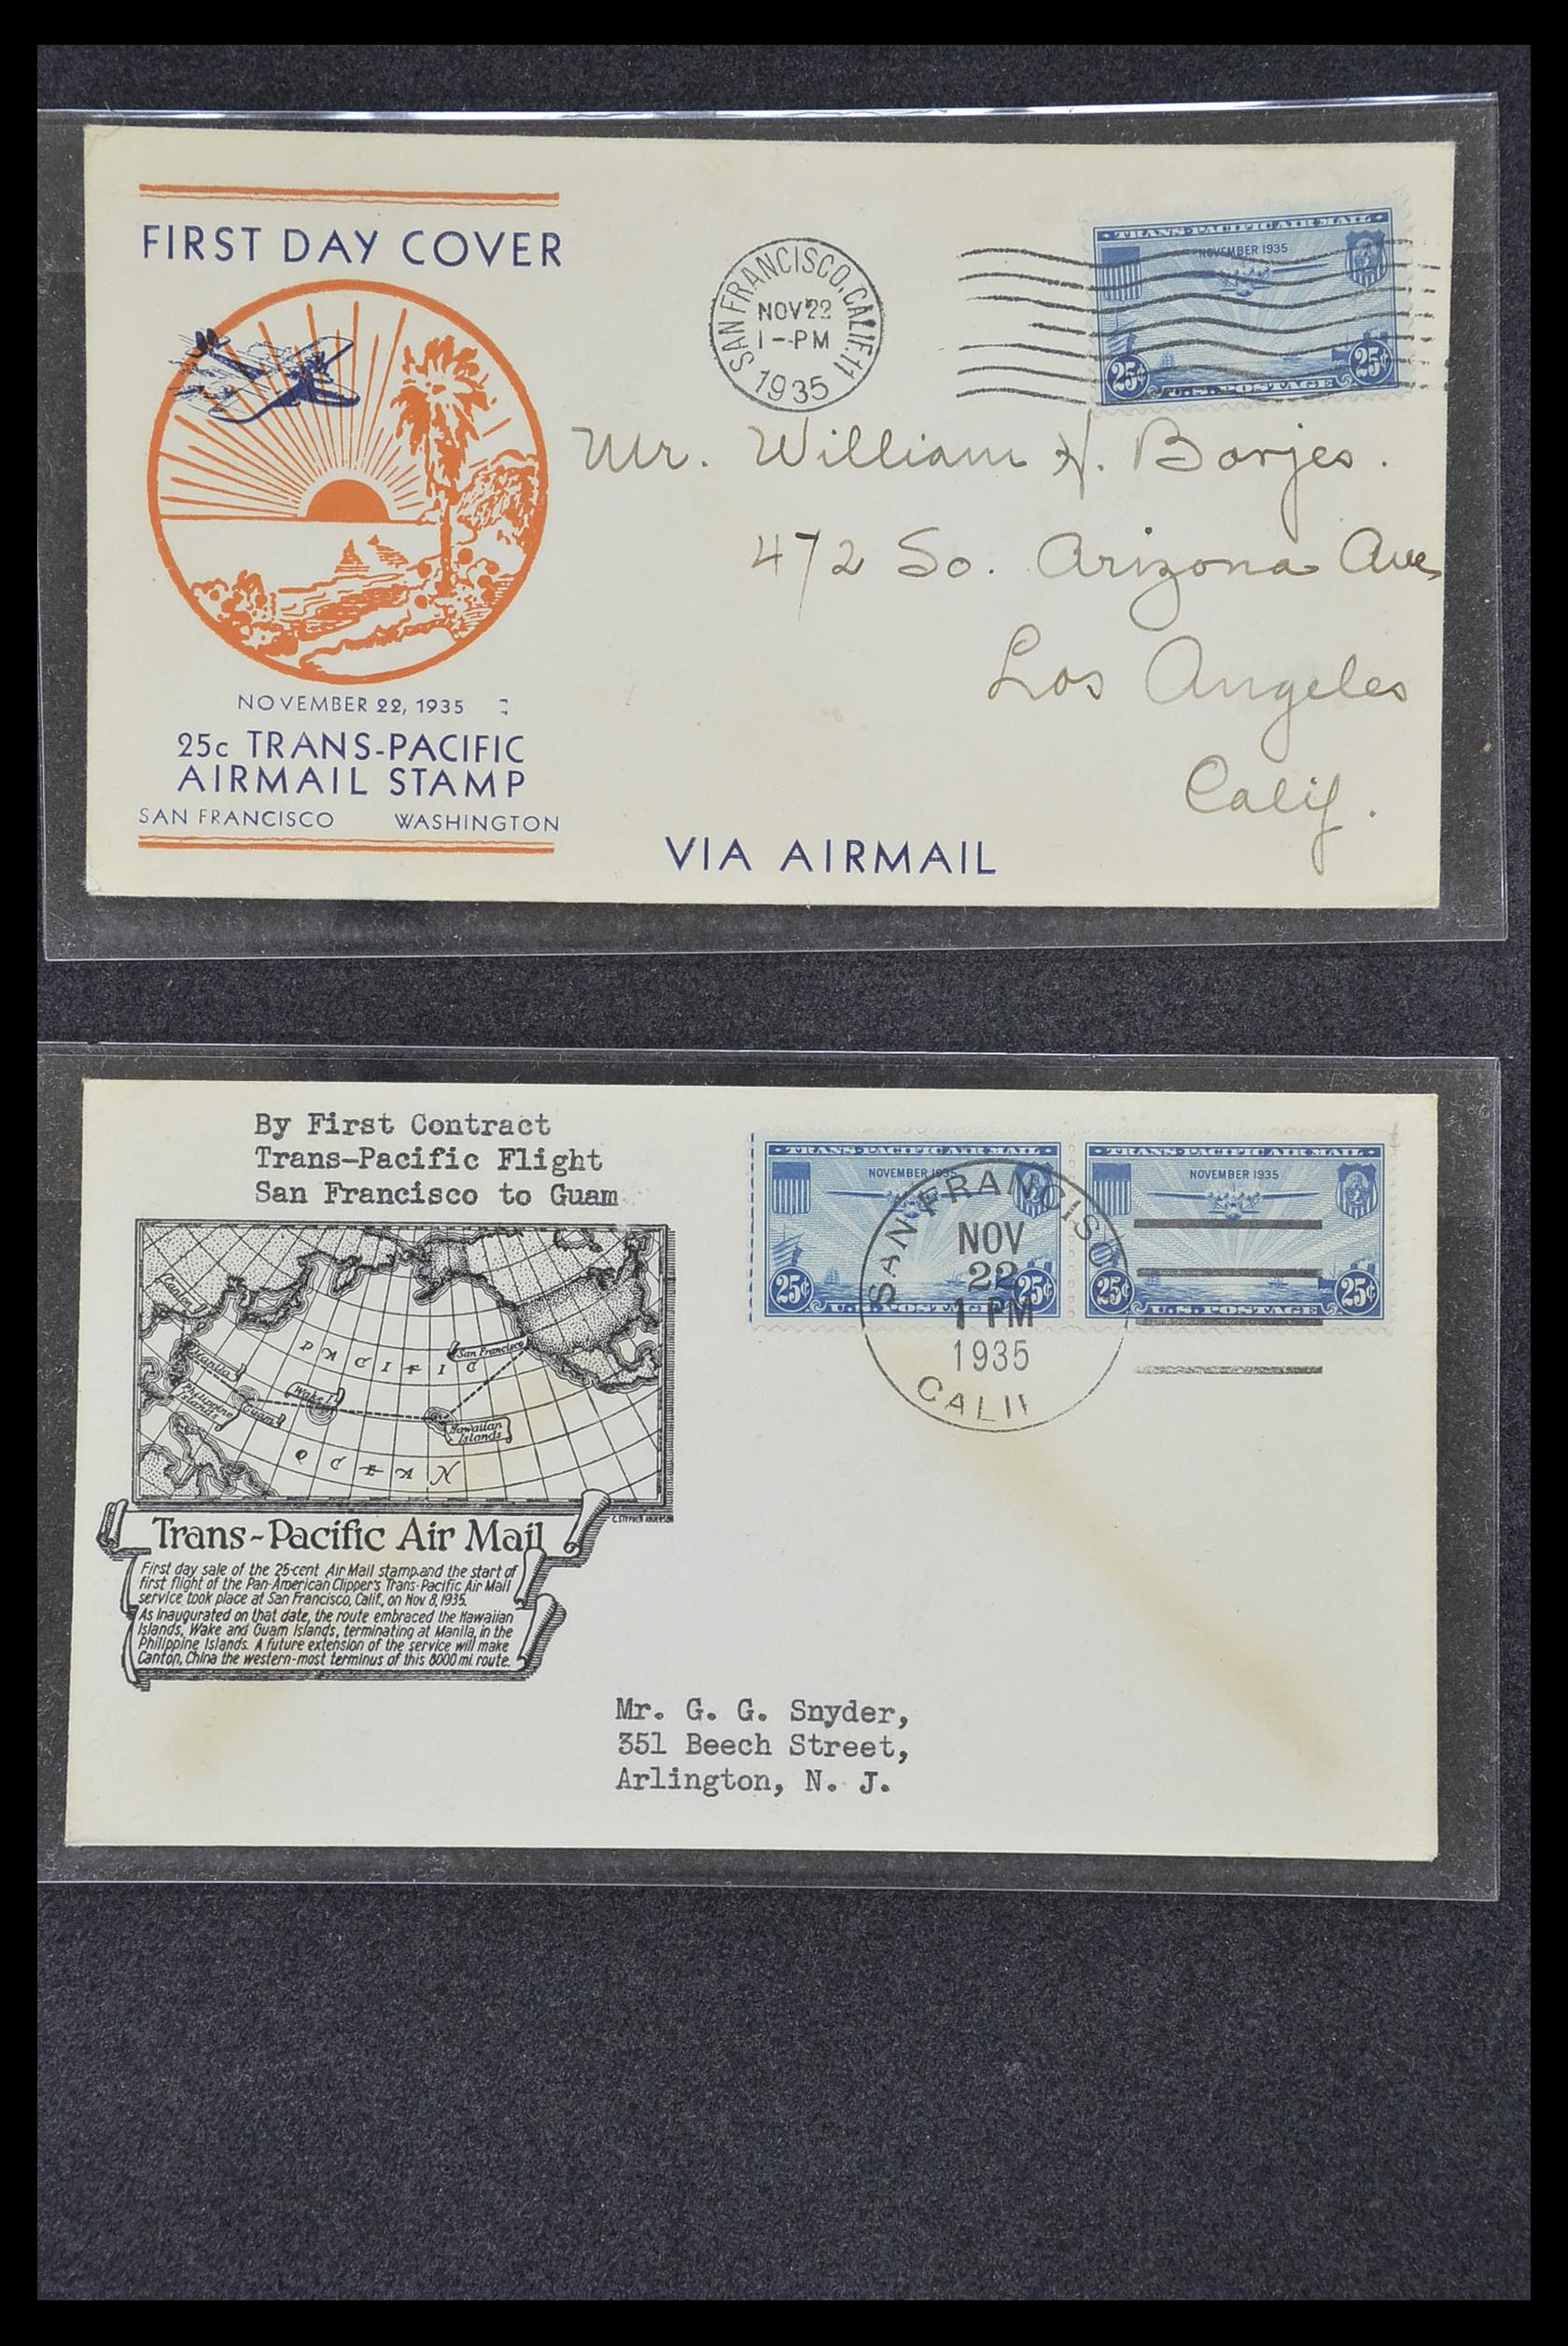 FIRST DAY COVER
NOVEMBER 22, 1935
25c TRANS-PACIFIC
AIRMAIL STAMP
SAN FRANCISCO WASHINGTON
SAN FRANCISCO, CALIF. 11
NOV 22
1-PM
1935
TRANS-PACIFIC AIR MAIL
NOVEMBER 1935
25¢ U.S. POSTAGE 25¢
Mr. William H. Borjes.
472 So. Arizona Ave,
Los Angeles
Calif.
VIA AIRMAIL
By First Contract
Trans-Pacific Flight
San Francisco to Guam
Canton
Manila
Philippine Islands
Guam
Wake I.
San Francisco
Hawaiian Islands
PACIFIC
OCEAN
C. STEPHEN ANDERSON
Trans-Pacific Air Mail
First day sale of the 25-cent Air Mail stamp and the start of
first flight of the Pan-American Clipper's Trans-Pacific Air Mail
service took place at San Francisco, Calif., on Nov 8, 1935.
As inaugurated on that date, the route embraced the Hawaiian
Islands, Wake and Guam Islands, terminating at Manila, in the
Philippine Islands. A future extension of the service will make
Canton, China the western-most terminus of this 8000 mi. route.
TRANS-PACIFIC AIR MAIL
NOVEMBER 1935
25¢ U.S. POSTAGE 25¢
TRANS-PACIFIC AIR MAIL
NOVEMBER 1935
25¢ U.S. POSTAGE 25¢
SAN FRANCISCO
NOV
22
1 PM
1935
CALIF
Mr. G. G. Snyder,
351 Beech Street,
Arlington, N. J.